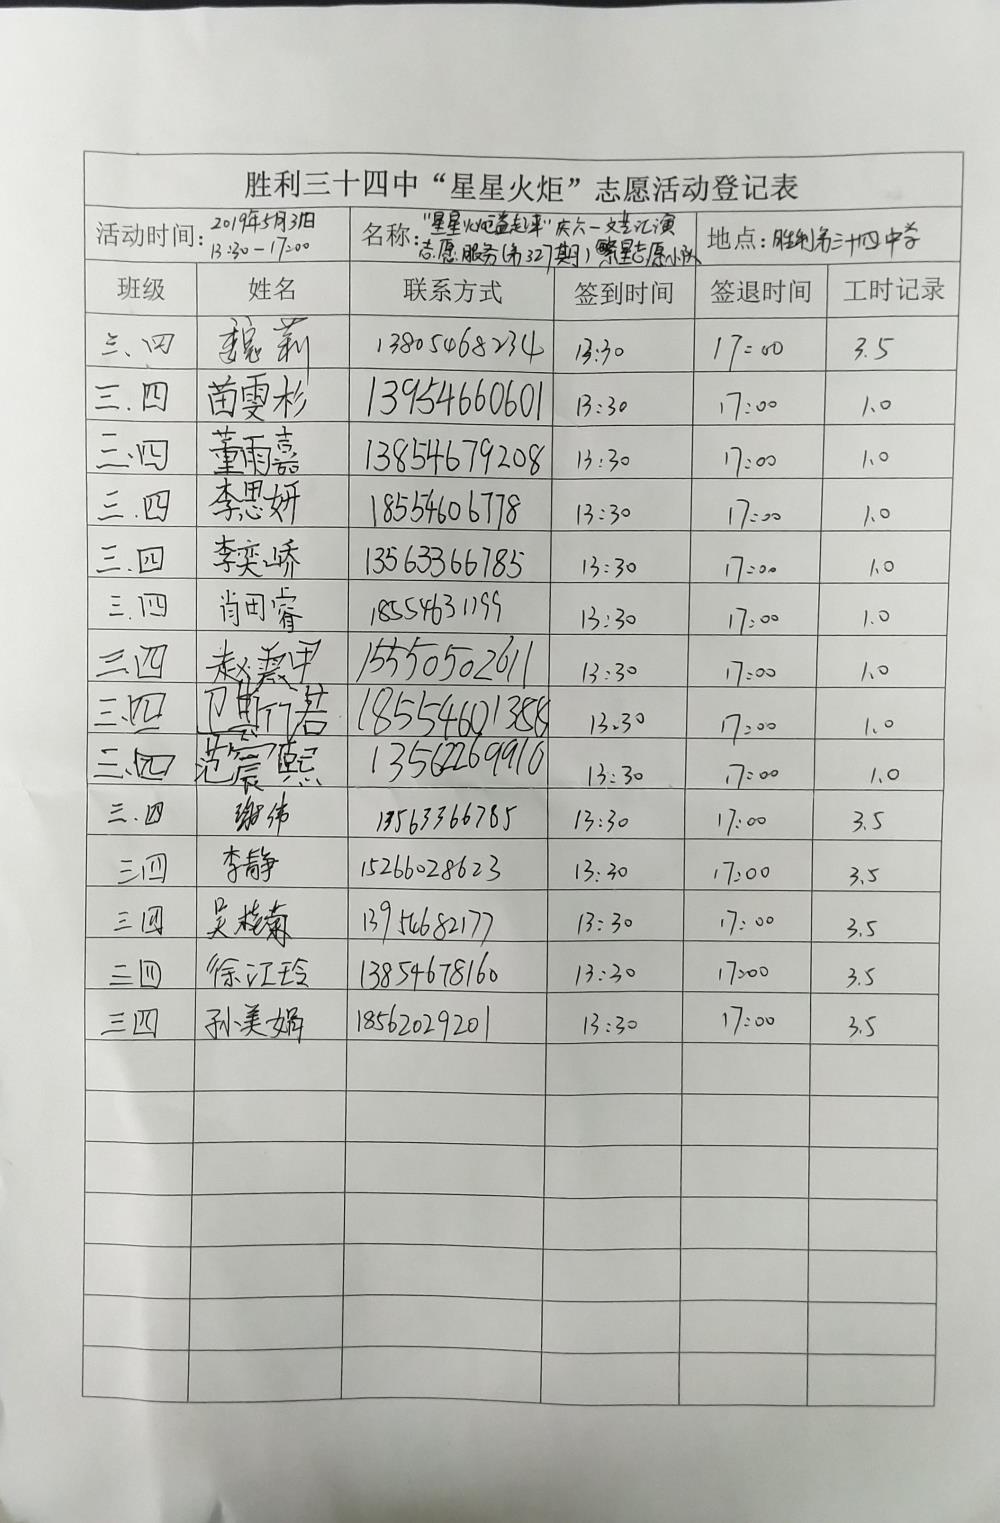 胜利三十四中“星星火炬”志愿活动登记表
活动时间: 2019年5月31日 13:30-17:00 名称: "星星火炬益起来"庆六一文艺汇演志愿服务(第327期)繁星志愿小队 地点: 胜利第三十四中学
班级 姓名 联系方式 签到时间 签退时间 工时记录
三.四 魏莉 13805468234 13:30 17:00 3.5
三.四 苗雯杉 13954660601 13:30 17:00 1.0
三.四 董雨嘉 13854679208 13:30 17:00 1.0
三.四 李思妍 18554606778 13:30 17:00 1.0
三.四 李奕娇 13563366785 13:30 17:00 1.0
三.四 肖田睿 18554631199 13:30 17:00 1.0
三四 赵 甲 15550502611 13:30 17:00 1.0
三.四 18554601388 13:30 17:00 1.0
三.四 范宸熙 13562269910 13:30 17:00 1.0
三.四 谢伟 13563366785 13:30 17:00 3.5
三四 李静 15266028623 13:30 17:00 3.5
三四 吴桂菊 13954682177 13:30 17:00 3.5
三四 徐江玲 13854678160 13:30 17:00 3.5
三四 孙美娟 18562029201 13:30 17:00 3.5